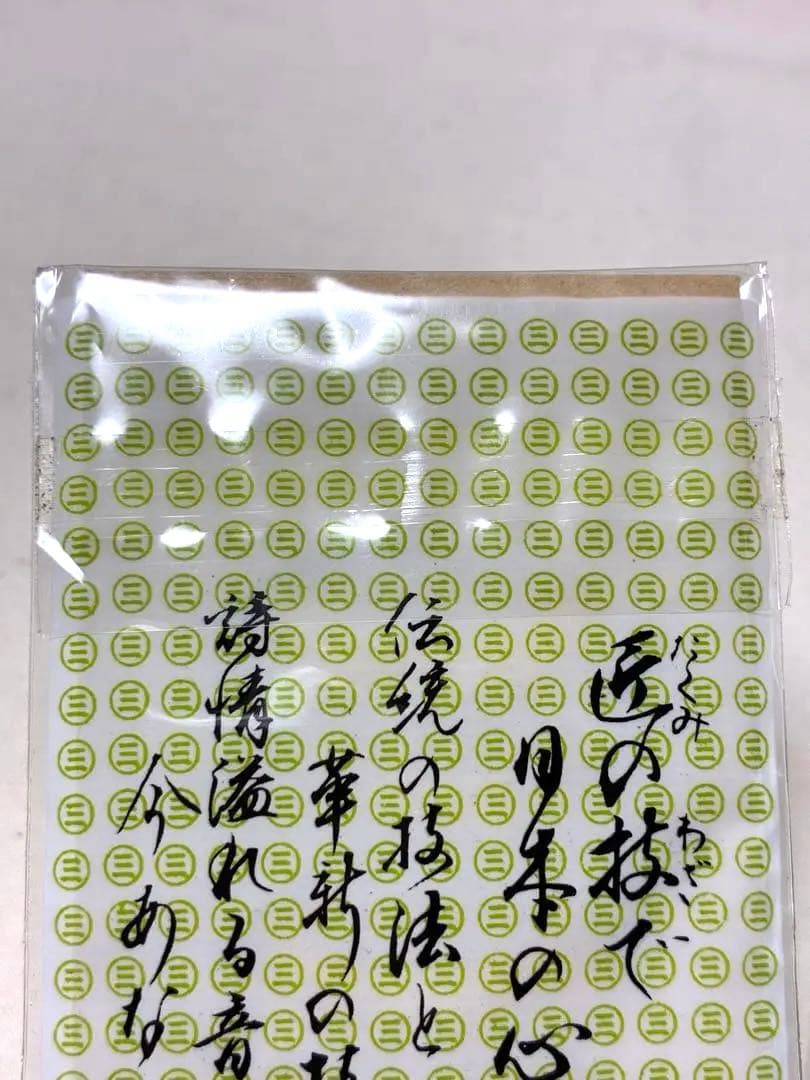 匠の技で
たくみ わざ
日本の心
伝統の技法と
革新の技
詩情溢れる音
今あな